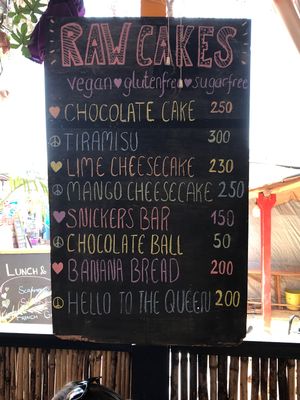 RAW CAKES
vegan♥glutenfree♥sugarfree
CHOCOLATE CAKE 250
TIRAMISU 300
LIME CHEESECAKE 230
MANGO CHEESECAKE 250
SNICKERS BAR 150
CHOCOLATE BALL 50
BANANA BREAD 200
HELLO TO THE QUEEN 200
LUNCH &